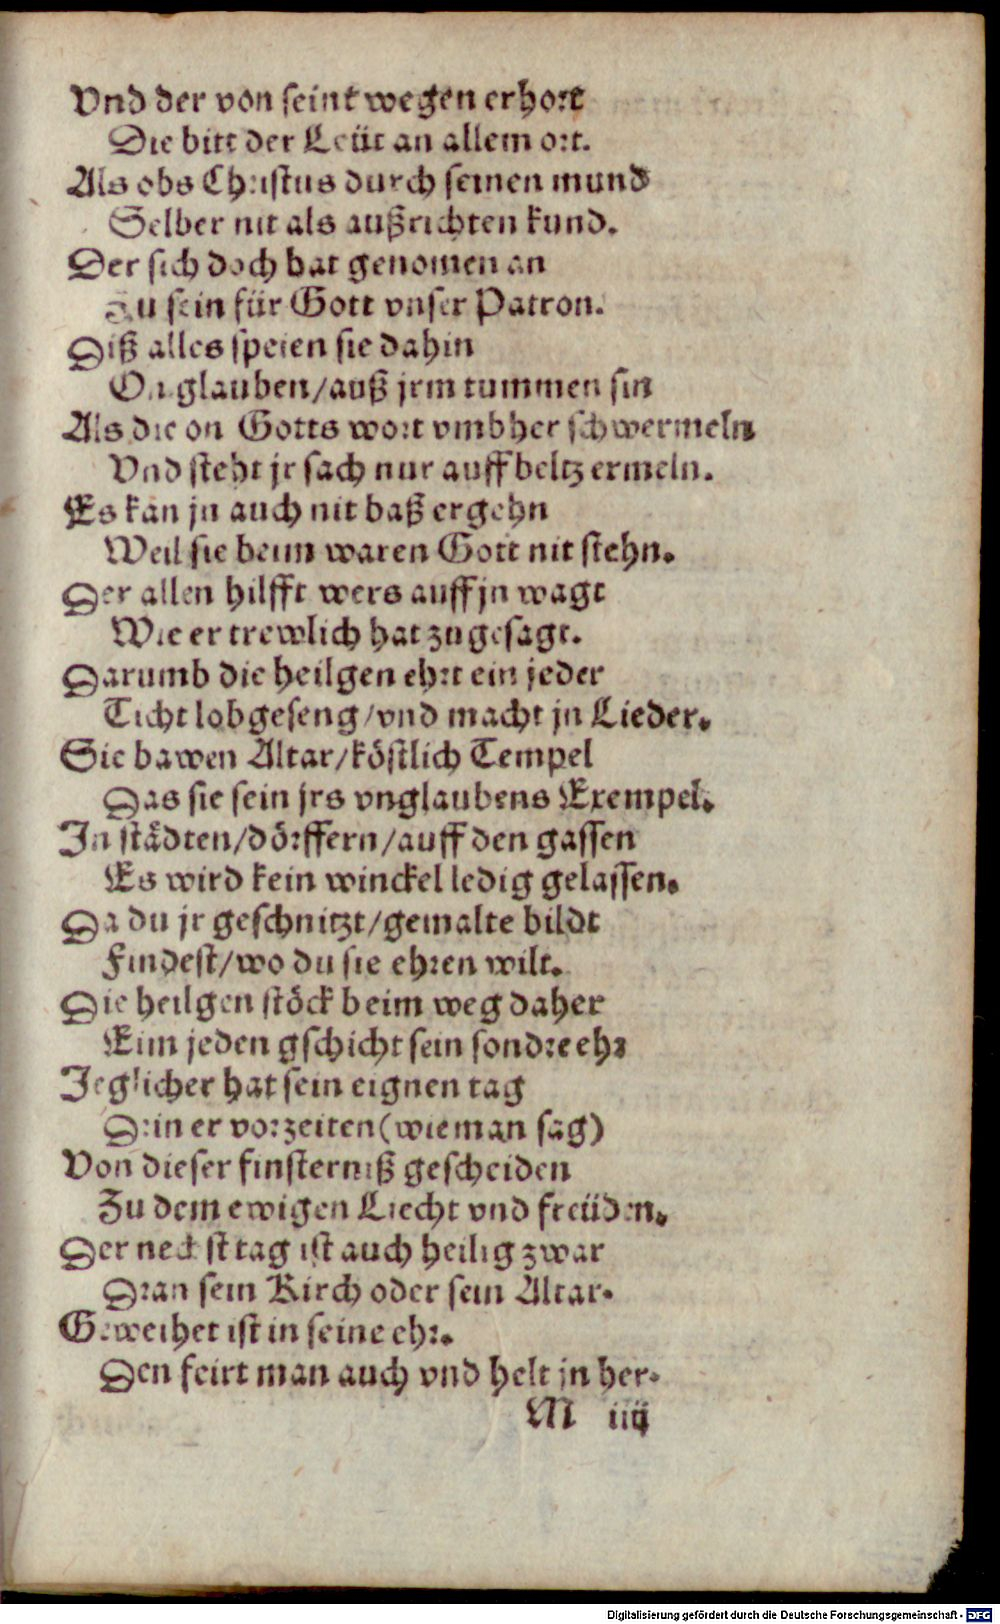 Vnd der von seint wegen erhort
Die bitt der Leüt an allem ort.
Als obs Christus durch seinen mund
Selber nit als außrichten kund.
Der sich doch hat genomen an
Zu sein für Gott vnser Patron.
Diß alles speien sie dahin
On glauben/auß jrm tummen sin
Als die on Gotts wort vmbher schwermeln
Vnd steht jr sach nur auff beltz ermeln.
Es kan jn auch nit baß ergehn
Weil sie beim waren Gott nit stehn.
Der allen hilfft wers auff jn wagt
Wie er trewlich hat zugesagt.
Darumb die heilgen ehrt ein jeder
Ticht lobgeseng/vnd macht jn Lieder.
Sie bawen Altar/köstlich Tempel
Das sie sein jrs vnglaubens Exempel.
In städten/dörffern/auff den gassen
Es wird kein winckel ledig gelassen.
Da du jr geschnitzt/gemalte bildt
Findest/wo du sie ehren wilt.
Die heilgen stöck beim weg daher
Eim jeden gschicht sein sondre ehr
Jeglicher hat sein eignen tag
Drin er vorzeiten (wie man sag)
Von dieser finsterniß gescheiden
Zu dem ewigen Liecht vnd freüden.
Der nechst tag ist auch heilig zwar
Dran sein Kirch oder sein Altar.
Geweihet ist in seine ehr.
Den feirt man auch vnd helt jn her.
M iiij
Digitalisierung gefördert durch die Deutsche Forschungsgemeinschaft - DFG